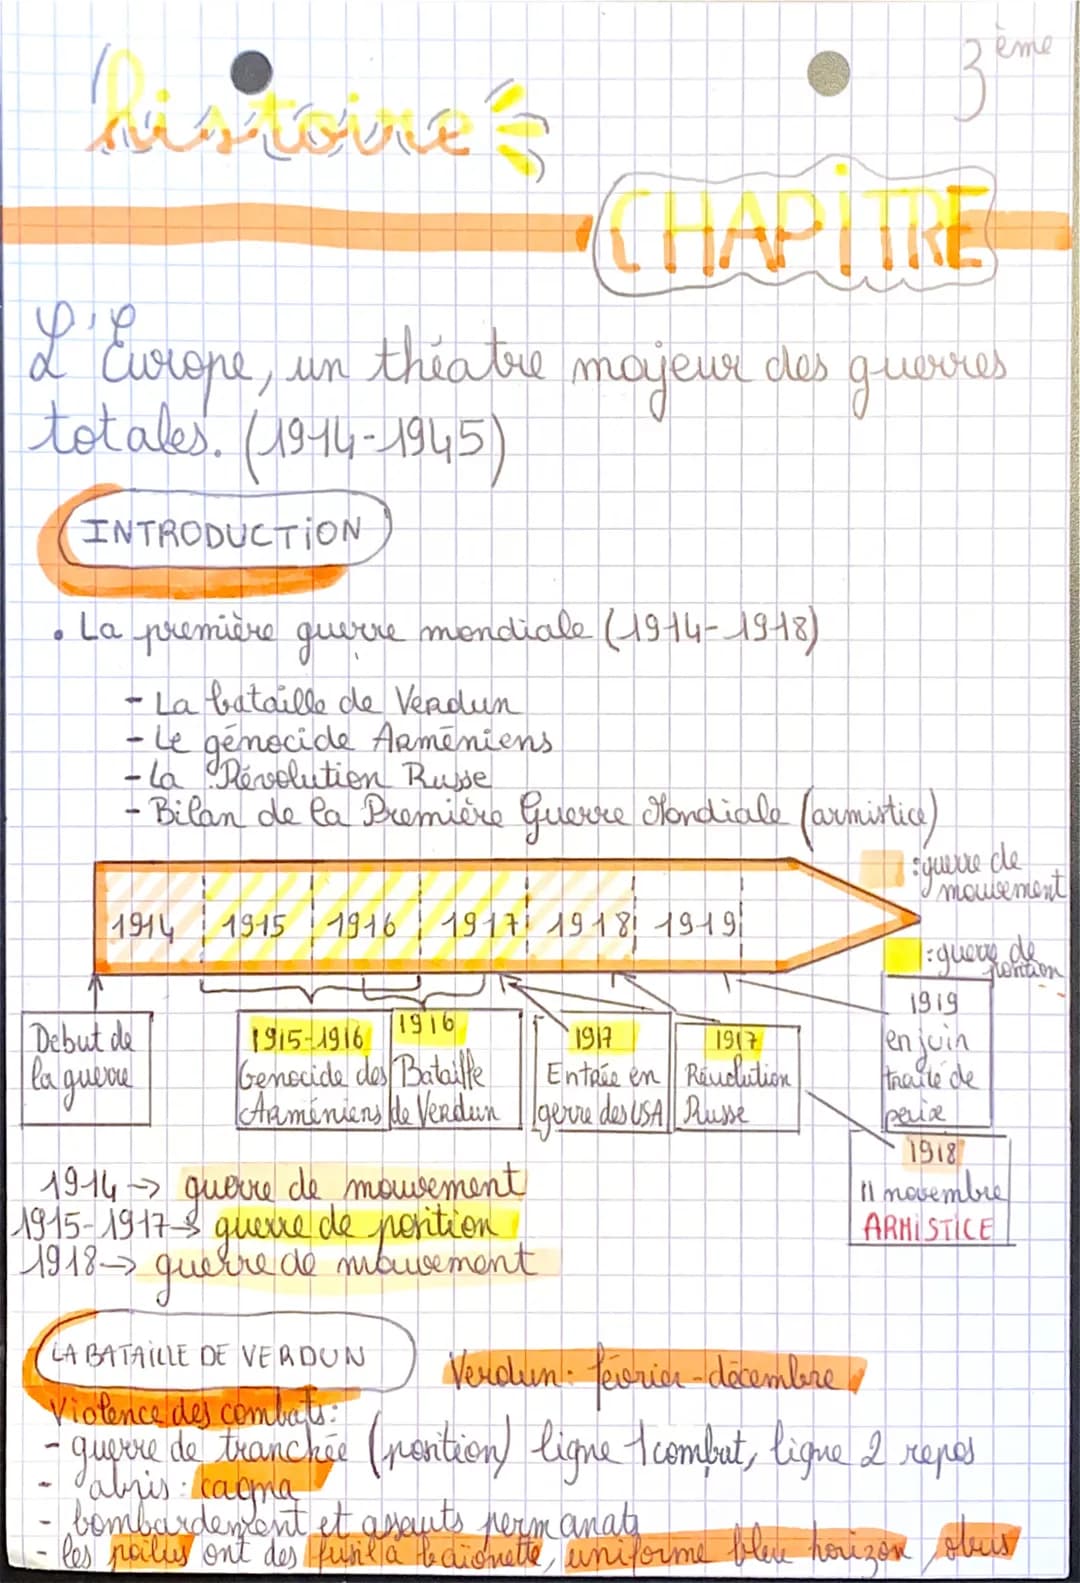 3ème
histoire
CHAPITRE
L'Europe, un théatre majeur des guerres
totales. (1914-1945)
INTRODUCTION
• La première guerre mondiale (1914-1918)
- La bataille de Verdun
- Le génocide Arméniens
- La Révolution Russe
- Bilan de la Première Guerre Mondiale (armistice)
: guerre de
mouvement
1914 1915 1916 1917 1918 1919
: guerre de
position
Debut de
la guerre
1915-1916
Genocide des
Arméniens
1916
Bataille
de Verdun
1917
Entrée en
gerre des USA
1917
Révolution
Russe
1919
en juin
traité de
peix
1918
11 novembre
ARMISTICE
1914 → guerre de mouvement
1915-1917 → guerre de position
1918 → guerre de mouvement
LA BATAILLE DE VERDUN
Verdun: février-décembre
Violence des combats:
- guerre de tranchée (position) ligne 1 combat, ligne 2 repos
- abris: cagna
- bombardement et assauts permanats
- les poilus ont des fusil à baïonette, uniforme bleu horizon, obus